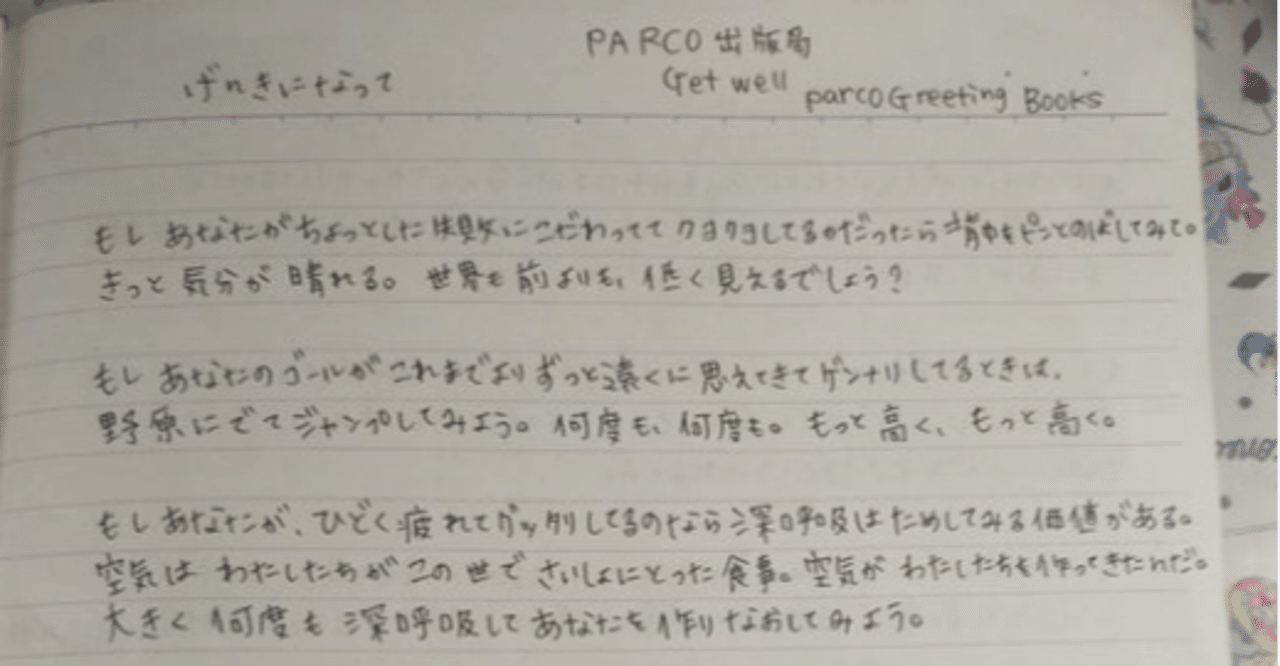 PARCO 出版局
げんきになって Get well parco Greeting Books
もし あなたがちょっとした失敗にこだわってて クヨクヨしてるのだったら 背中をピンとのばしてみて。
きっと 気分が 晴れる。 世界も 前よりも、低く見えるでしょう?
もし あなたの ゴールが これまでより ずっと遠くに 思えてきて ゲンナリしてるときは、
野原に でて ジャンプしてみよう。 何度も、何度も。 もっと 高く、もっと 高く。
もし あなたが、ひどく 疲れて グッタリしてるのなら 深呼吸は ためしてみる 価値がある。
空気は わたしたちが この 世で さいしょにとった 食事。 空気が わたしたちを 作ってきたんだ。
大きく 何度も 深呼吸して あなたを 作りなおして みよう。